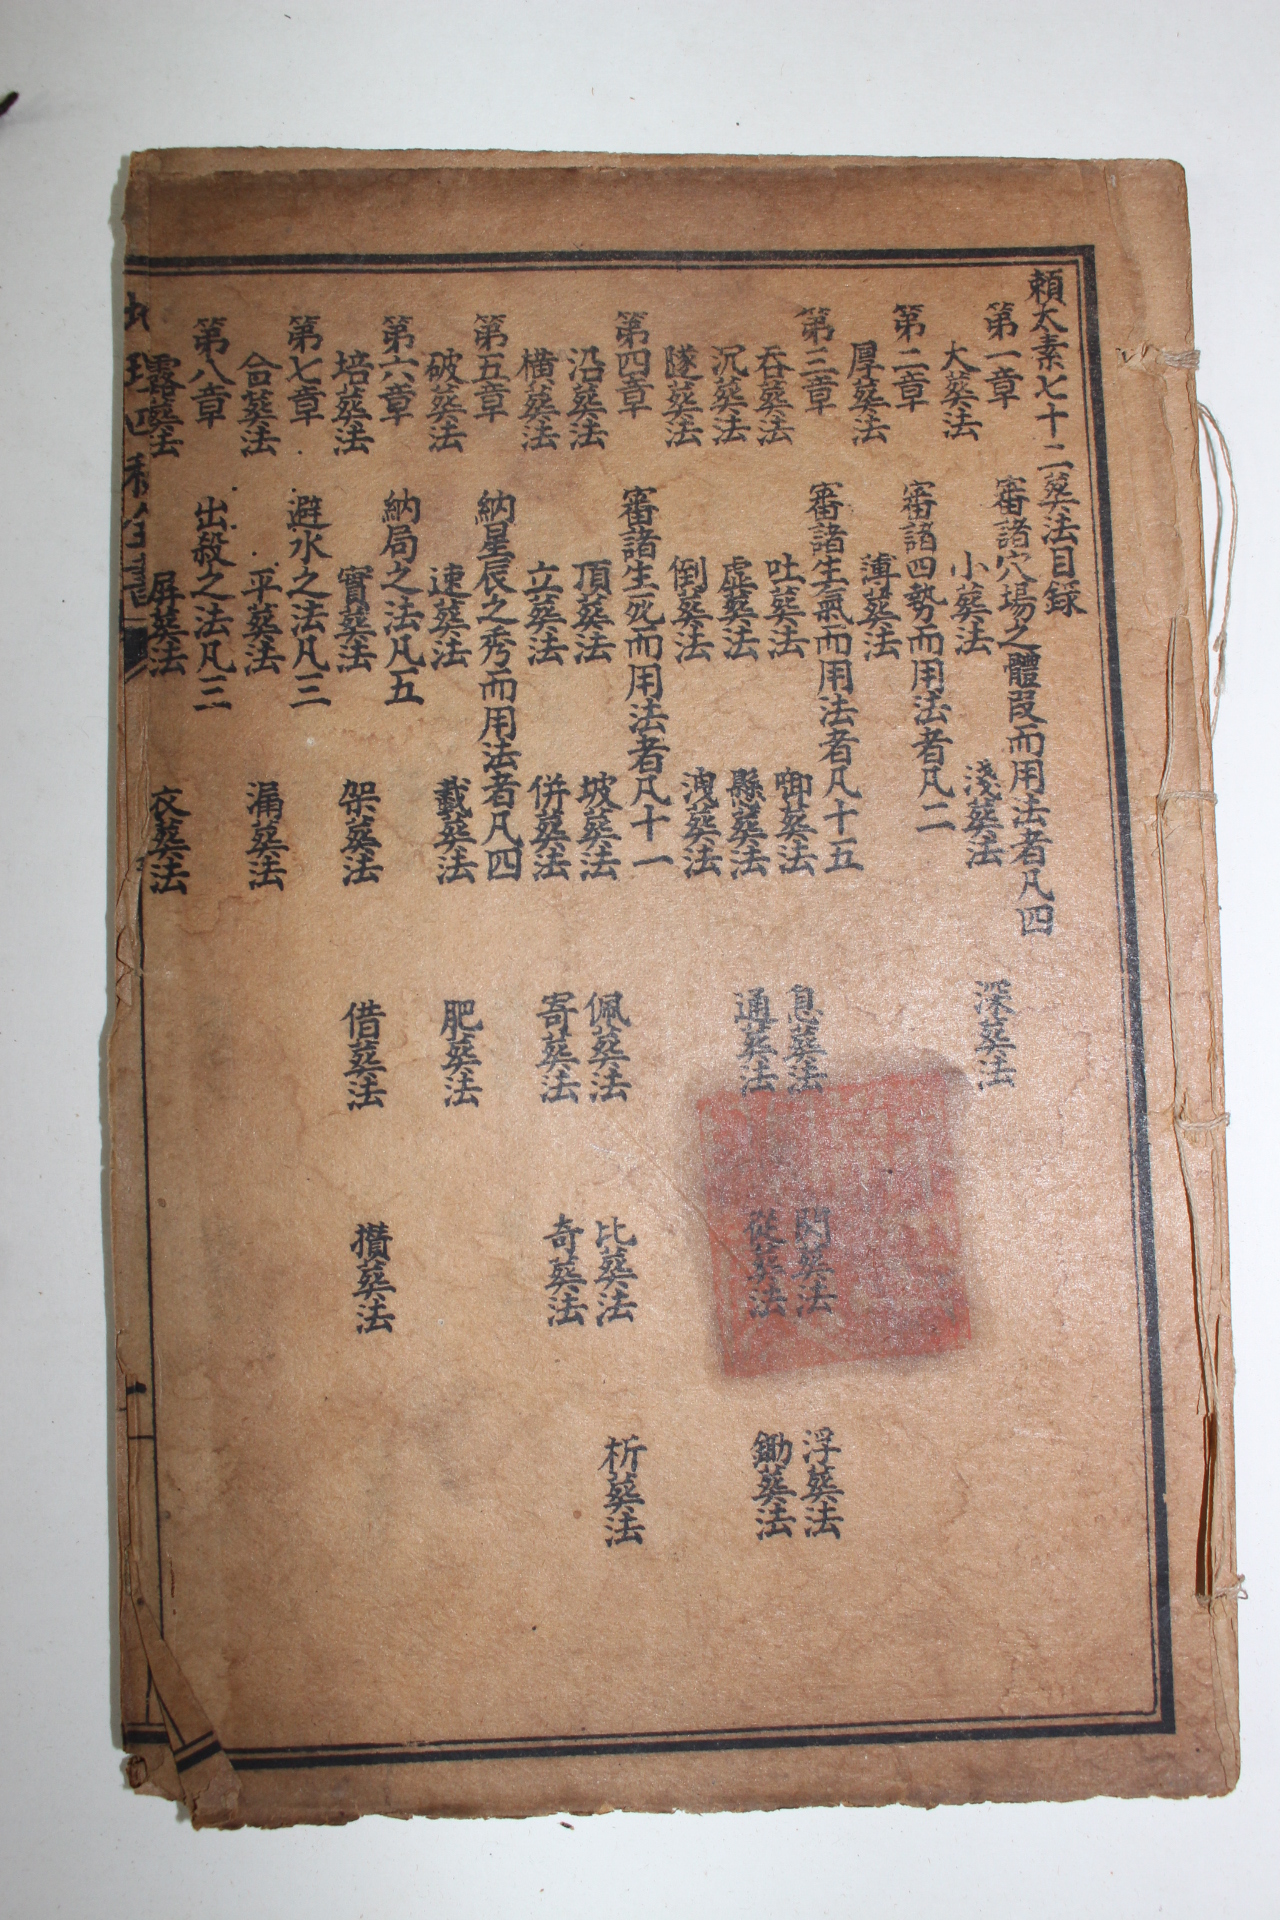 賴太素七十二葬法目錄
第一章 審諸穴場之體段而用法者凡四
大葬法 小葬法 淺葬法 深葬法
第二章 審諸四勢而用法者凡二
厚葬法 薄葬法
第三章 審諸生氣而用法者凡十五
吞葬法 吐葬法 啣葬法 息葬法 閉葬法 浮葬法
沉葬法 虛葬法 懸葬法 通葬法 從葬法 鋤葬法
隧葬法 倒葬法 洩葬法
第四章 審諸生死而用法者凡十一
沿葬法 頂葬法 坡葬法 佩葬法 比葬法 析葬法
橫葬法 立葬法 併葬法 寄葬法 奇葬法
第五章 納星辰之秀而用法者凡四
破葬法 速葬法 載葬法 肥葬法
第六章 納局之法凡五
培葬法 實葬法 架葬法 借葬法 攢葬法
第七章 避水之法凡三
合葬法 平葬法 漏葬法
第八章 出殺之法凡三
露葬法 屏葬法 衣葬法